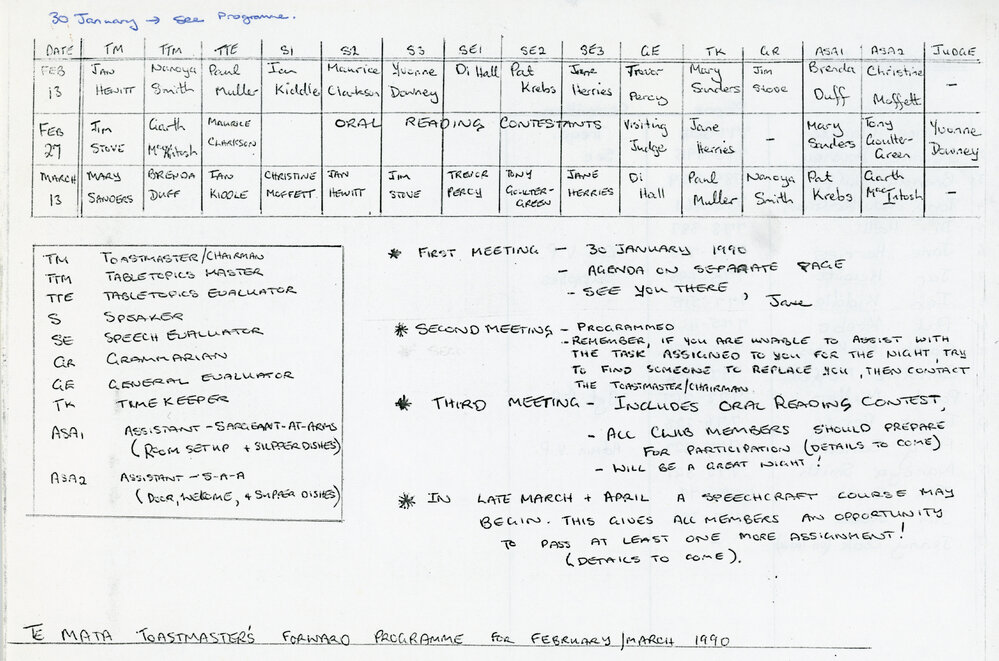 30 January → See Programme.
DATE TM TTM TTE S1 S2 S3 SE1 SE2 SE3 GE TK GR ASA1 ASA2 JUDGE
FEB Jan Nanoya Paul Ian Maurice Yvonne Di Hall Pat Jane Trevor Mary Jim Brenda Christine
13 HEWITT Smith Muller Kiddle Clarkson Downey Krebs Herries Percy Sanders Stove Duff Moffett -
FEB Jim Garth MAURICE ORAL READING CONTESTANTS Visiting Jane Mary Tony Yvonne
27 STOVE McIntosh CLARKSON Judge Herries - Sanders Coulter-Green Downey
MARCH MARY BRENDA IAN CHRISTINE JAN JIM TREVOR TONY JANE Di Paul Nanoya Pat Garth
13 SANDERS DUFF KIDDLE MOFFETT HEWITT STOVE PERCY COULTER-GREEN HERRIES Hall Muller Smith Krebs MacIntosh -
TM TOASTMASTER/CHAIRMAN
TTM TABLETOPICS MASTER
TTE TABLETOPICS EVALUATOR
S SPEAKER
SE SPEECH EVALUATOR
GR GRAMMARIAN
GE GENERAL EVALUATOR
TK TIMEKEEPER
ASA1 ASSISTANT-SARGEANT-AT-ARMS
(ROOM SET UP + SUPPER DISHES)
ASA2 ASSISTANT-S-A-A
(DOOR, WELCOME, + SUPPER DISHES)
* FIRST MEETING - 30 JANUARY 1990
- AGENDA ON SEPARATE PAGE
- SEE YOU THERE, Jane
* SECOND MEETING - PROGRAMMED
- REMEMBER, IF YOU ARE UNABLE TO ASSIST WITH
THE TASK ASSIGNED TO YOU FOR THE NIGHT, TRY
TO FIND SOMEONE TO REPLACE YOU, THEN CONTACT
THE TOASTMASTER/CHAIRMAN.
* THIRD MEETING - INCLUDES ORAL READING CONTEST,
- ALL CLUB MEMBERS SHOULD PREPARE
FOR PARTICIPATION (DETAILS TO COME)
- WILL BE A GREAT NIGHT!
* IN LATE MARCH + APRIL A SPEECHCRAFT COURSE MAY
BEGIN. THIS GIVES ALL MEMBERS AN OPPORTUNITY
TO PASS AT LEAST ONE MORE ASSIGNMENT!
(DETAILS TO COME).
TE MATA TOASTMASTER'S FORWARD PROGRAMME FOR FEBRUARY/MARCH 1990